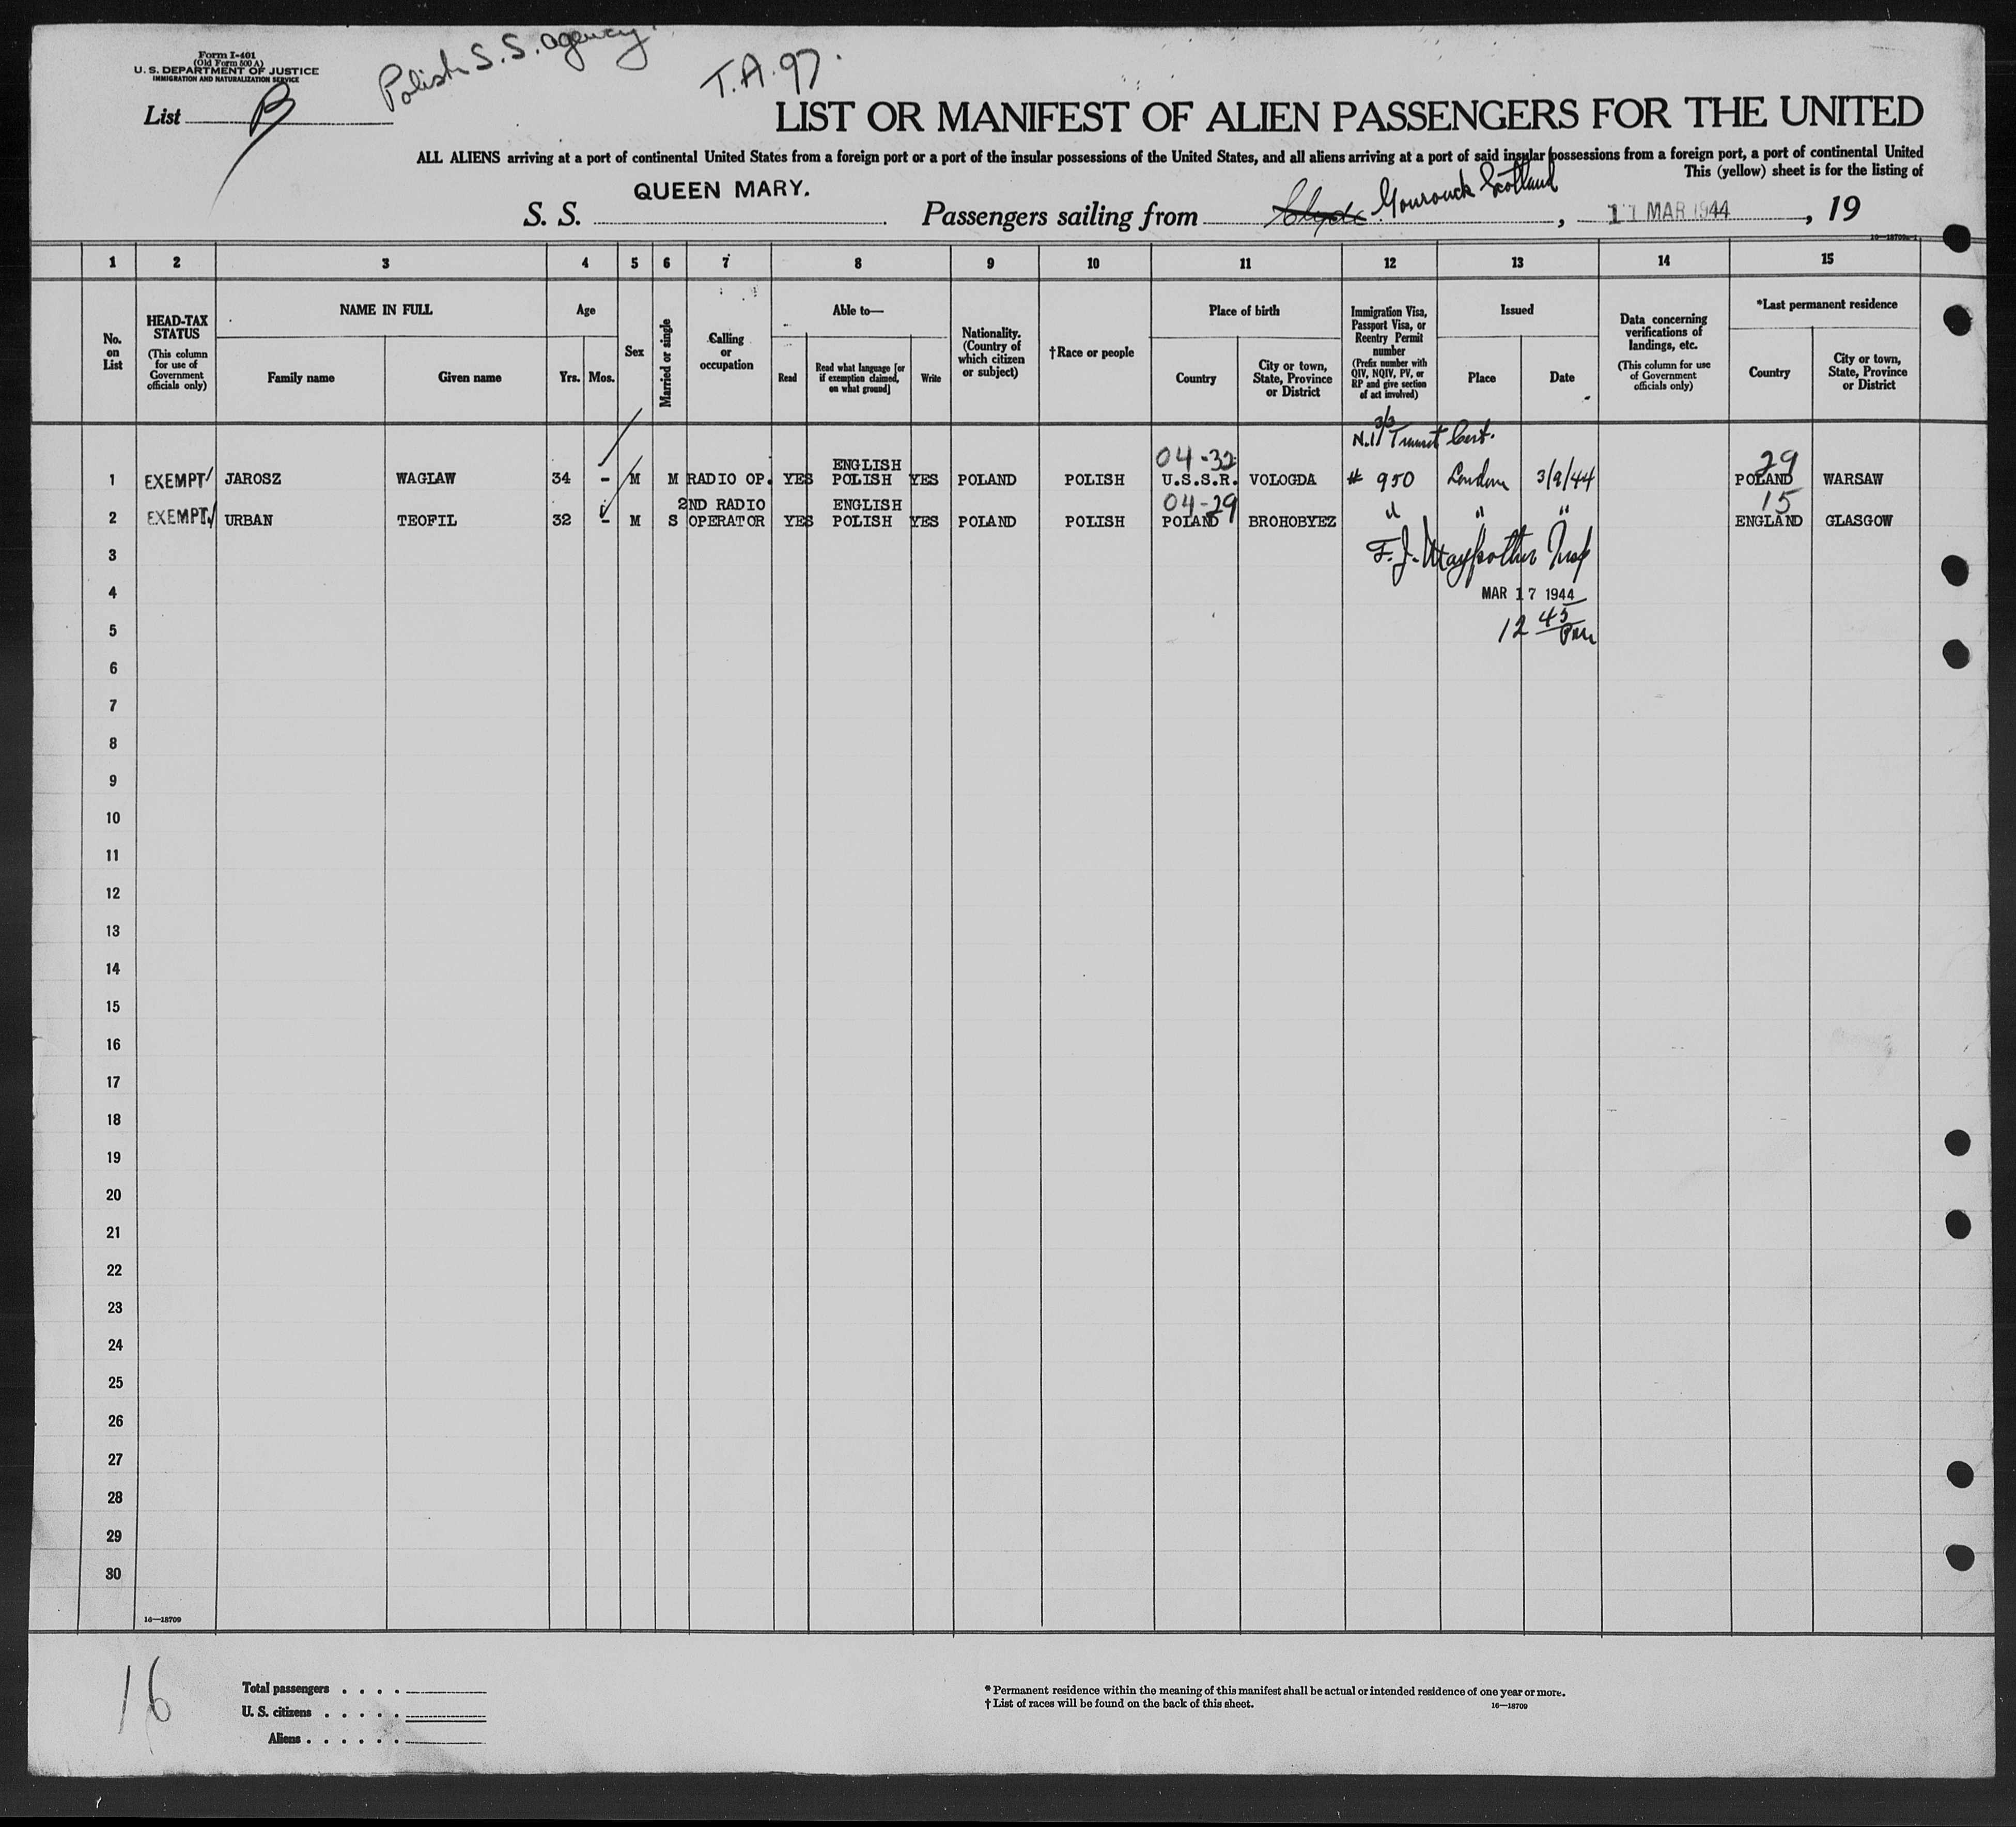 Form I-401
(Old Form 500 A)
U. S. DEPARTMENT OF JUSTICE
IMMIGRATION AND NATURALIZATION SERVICE
Polish S. S. agency.
T.A. 97.
List B
LIST OR MANIFEST OF ALIEN PASSENGERS FOR THE UNITED
ALL ALIENS arriving at a port of continental United States from a foreign port or a port of the insular possessions of the United States, and all aliens arriving at a port of said insular possessions from a foreign port, a port of continental United
This (yellow) sheet is for the listing of
S. S. QUEEN MARY. Passengers sailing from Clyde Gourouck Scotland, 11 MAR 1944, 19
16—18709a-1
1 2 3 4 5 6 7 8 9 10 11 12 13 14 15
No. on List
HEAD-TAX STATUS
(This column for use of Government officials only)
NAME IN FULL
Family name Given name
Age
Yrs. Mos.
Sex
Married or single
Calling or occupation
Able to—
Read
Read what language [or if exemption claimed, on what ground]
Write
Nationality. (Country of which citizen or subject)
†Race or people
Place of birth
Country
City or town, State, Province or District
Immigration Visa, Passport Visa, or Reentry Permit number
(Prefix number with QIV, NQIV, PV, or RP and give section of act involved)
Issued
Place Date
Data concerning verifications of landings, etc.
(This column for use of Government officials only)
*Last permanent residence
Country
City or town, State, Province or District
3/3
Transit Cert.
ENGLISH 04-32 29
1 EXEMPT JAROSZ WAGLAW 34 - M M RADIO OP. YES POLISH YES POLAND POLISH U.S.S.R. VOLOGDA # 950 London 3/9/44 POLAND WARSAW
2ND RADIO ENGLISH 04-29 15
2 EXEMPT URBAN TEOFIL 32 - M S OPERATOR YES POLISH YES POLAND POLISH POLAND BROHOBYEZ " " " ENGLAND GLASGOW
3
F. J. Maypother Insp
4
MAR 17 1944
5
12 45 Pm
6
7
8
9
10
11
12
13
14
15
16
17
18
19
20
21
22
23
24
25
26
27
28
29
30
16—18709
16
Total passengers . . . .
U. S. citizens . . . . .
Aliens . . . . . .
* Permanent residence within the meaning of this manifest shall be actual or intended residence of one year or more.
† List of races will be found on the back of this sheet.
16—18709